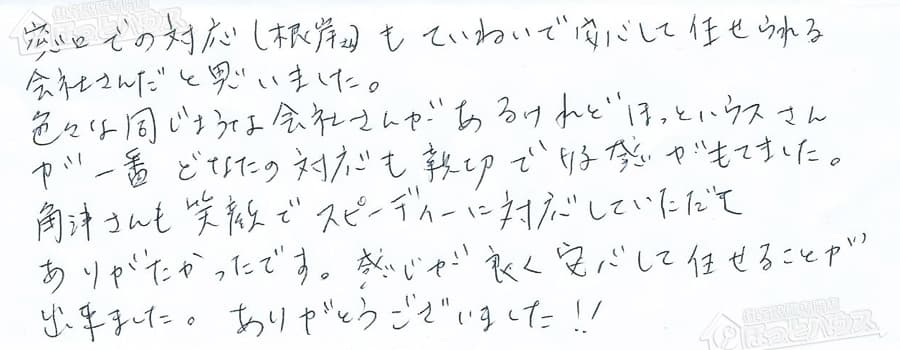 窓口での対応(根岸さん)もていねいで安心して任せられる
会社さんだと思いました。
色々な同じような会社さんがあるけれどほっとハウスさん
が一番どなたの対応も親切で好感がもてました。
角津さんも笑顔でスピーディーに対応していただき
ありがたかったです。感じが良く安心して任せることが
出来ました。ありがとうございました!!
ほっとハウス